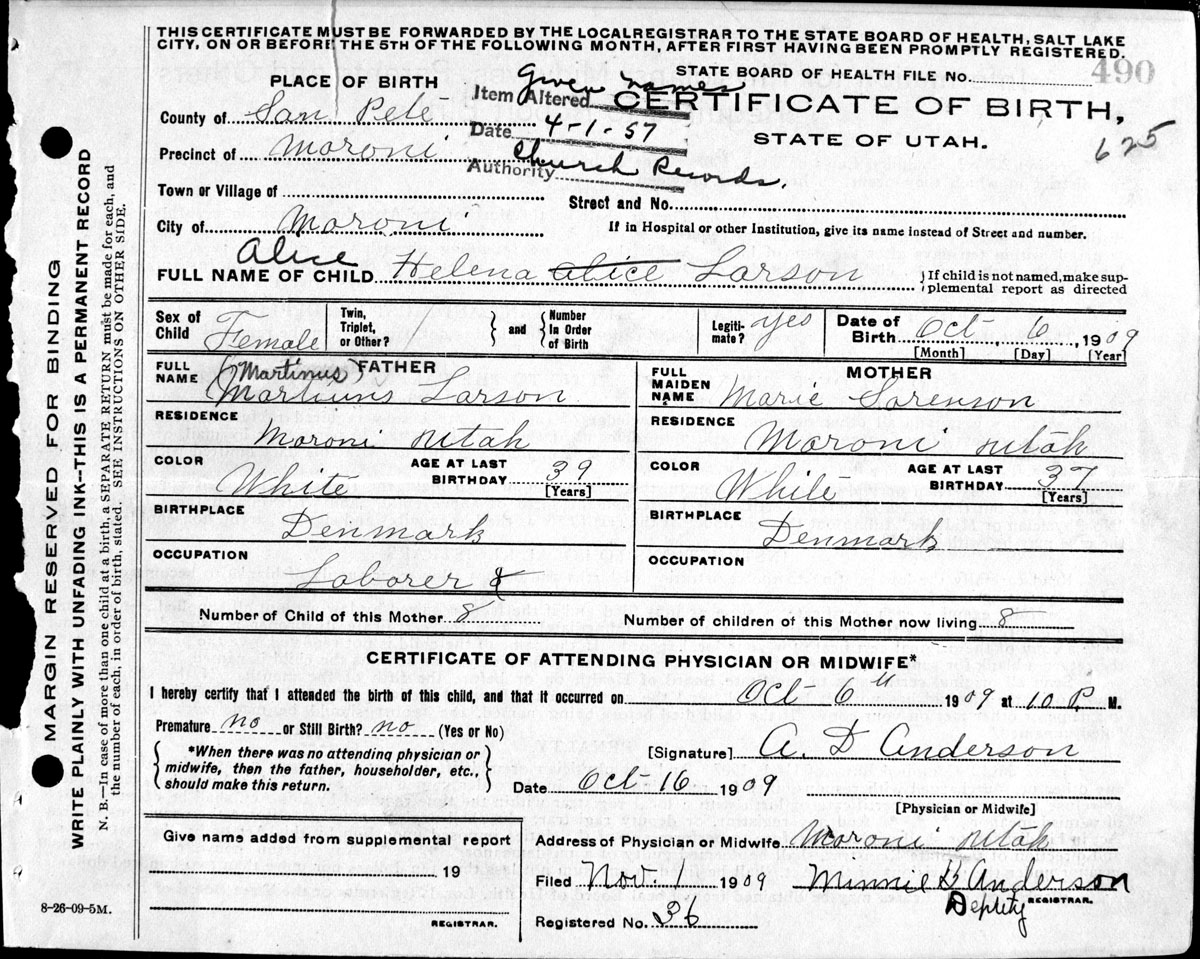 THIS CERTIFICATE MUST BE FORWARDED BY THE LOCALREGISTRAR TO THE STATE BOARD OF HEALTH, SALT LAKE
CITY, ON OR BEFORE THE 5TH OF THE FOLLOWING MONTH, AFTER FIRST HAVING BEEN PROMPTLY REGISTERED.
STATE BOARD OF HEALTH FILE No. 490
PLACE OF BIRTH
Item Altered Given Names
CERTIFICATE OF BIRTH,
County of San Pete
Date 4-1-57
STATE OF UTAH.
625
Precinct of Moroni
Authority Church Records.
Town or Village of
Street and No.
City of Moroni
If in Hospital or other Institution, give its name instead of Street and number.
Alice
FULL NAME OF CHILD Helena Alice Larson
If child is not named, make sup-
plemental report as directed
Sex of Child Female
Twin, Triplet, or Other?
and
Number In Order of Birth
Legiti-mate? yes
Date of Birth Oct 6, 1909
[Month] [Day] [Year]
FATHER
FULL NAME (Martinus)
Martiuns Larson
RESIDENCE
Moroni Utah
COLOR White AGE AT LAST BIRTHDAY 39
[Years]
BIRTHPLACE
Denmark
OCCUPATION
Laborer
MOTHER
FULL MAIDEN NAME Marie Sorenson
RESIDENCE
Moroni Utah
COLOR White AGE AT LAST BIRTHDAY 37
[Years]
BIRTHPLACE
Denmark
OCCUPATION
Number of Child of this Mother 8
Number of children of this Mother now living 8
CERTIFICATE OF ATTENDING PHYSICIAN OR MIDWIFE*
I hereby certify that I attended the birth of this child, and that it occurred on Oct 6th 1909 at 10 P. M.
Premature no or Still Birth? no (Yes or No)
*When there was no attending physician or
midwife, then the father, householder, etc.,
should make this return.
[Signature] A D Anderson
Date Oct 16 1909
[Physician or Midwife]
Give name added from supplemental report
19
REGISTRAR.
Address of Physician or Midwife Moroni Utah
Filed Nov. 1 1909 Minnie H Anderson
Deputy REGISTRAR.
Registered No. 36
8-26-09-5M.
MARGIN RESERVED FOR BINDING
WRITE PLAINLY WITH UNFADING INK--THIS IS A PERMANENT RECORD
N. B.—In case of more than one child at a birth, a SEPARATE RETURN must be made for each, and
the number of each, in order of birth, stated. SEE INSTRUCTIONS ON OTHER SIDE.